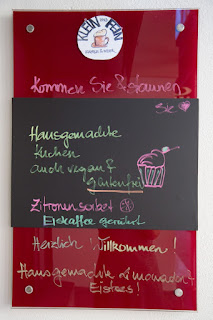 KLEIN UND FEIN
Kommen Sie & staunen
Sie
Hausgemachte
Kuchen
auch vegan &
glutenfrei
Zitronensorbet
Eiskaffee gerührt
Herzlich Willkommen!
Hausgemachte Limonade +
Eistees!